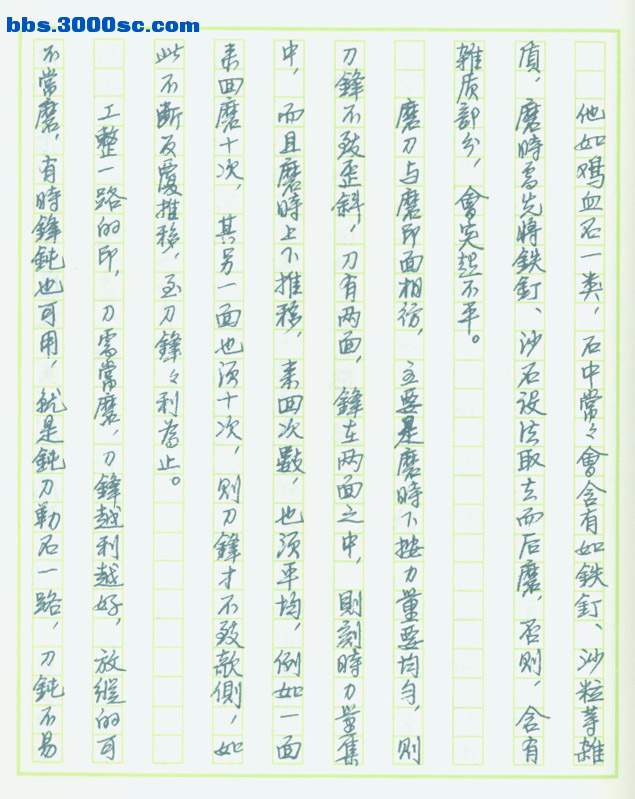 bbs.3000sc.com
他如鸡血石一类，石中常々會含有如鉄釘、沙粒等雜
质，磨時需先將鉄釘、沙石设法取去而后磨，否则，含有
雜质部分，會突起不平。
磨刀与磨印面相彷，主要是磨時下按力量要均匀，则
刀鋒不致歪斜，刀有两面，鋒在两面之中，則刻時力量集
中，而且磨時上下推移，来回次數，也须平均，例如一面
来回磨十次，其另一面也须十次，则刀鋒才不致欹側，如
此不断反覆推移，至刀鋒々利為止。
工整一路的印，刀需常磨，刀鋒越利越好，放縱的可
不常磨，有時鋒鈍也可用，就是鈍刀勒石一路，刀鈍不易